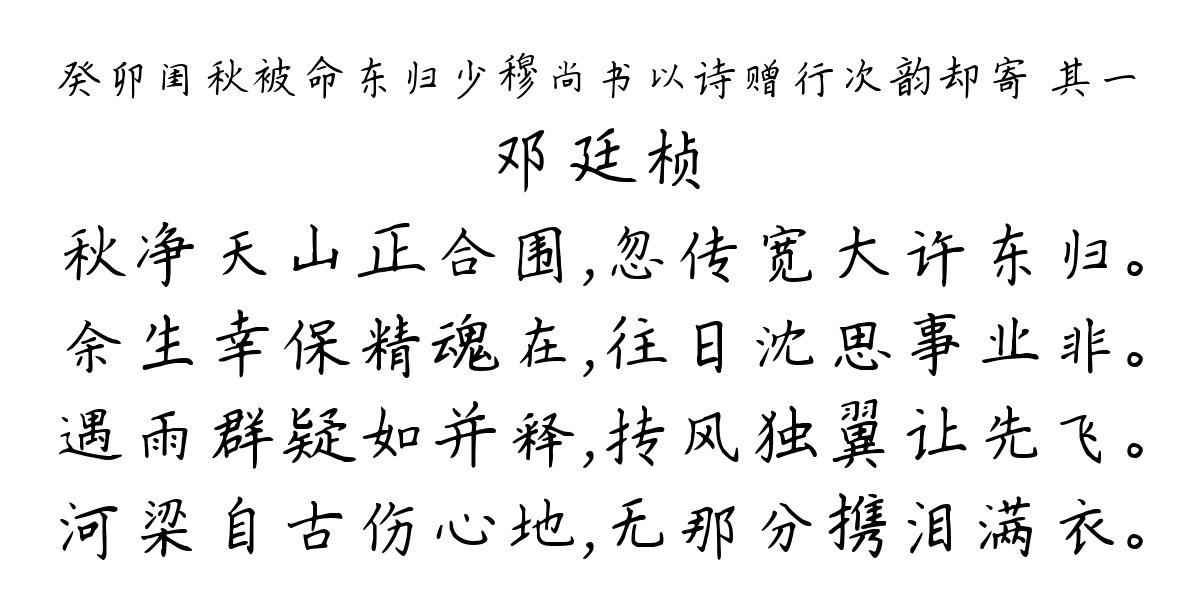 癸卯闺秋被命东归少穆尚书以诗赠行次韵却寄 其一
邓廷桢
秋净天山正合围,忽传宽大许东归。
余生幸保精魂在,往日沈思事业非。
遇雨群疑如并释,抟风独翼让先飞。
河梁自古伤心地,无那分携泪满衣。